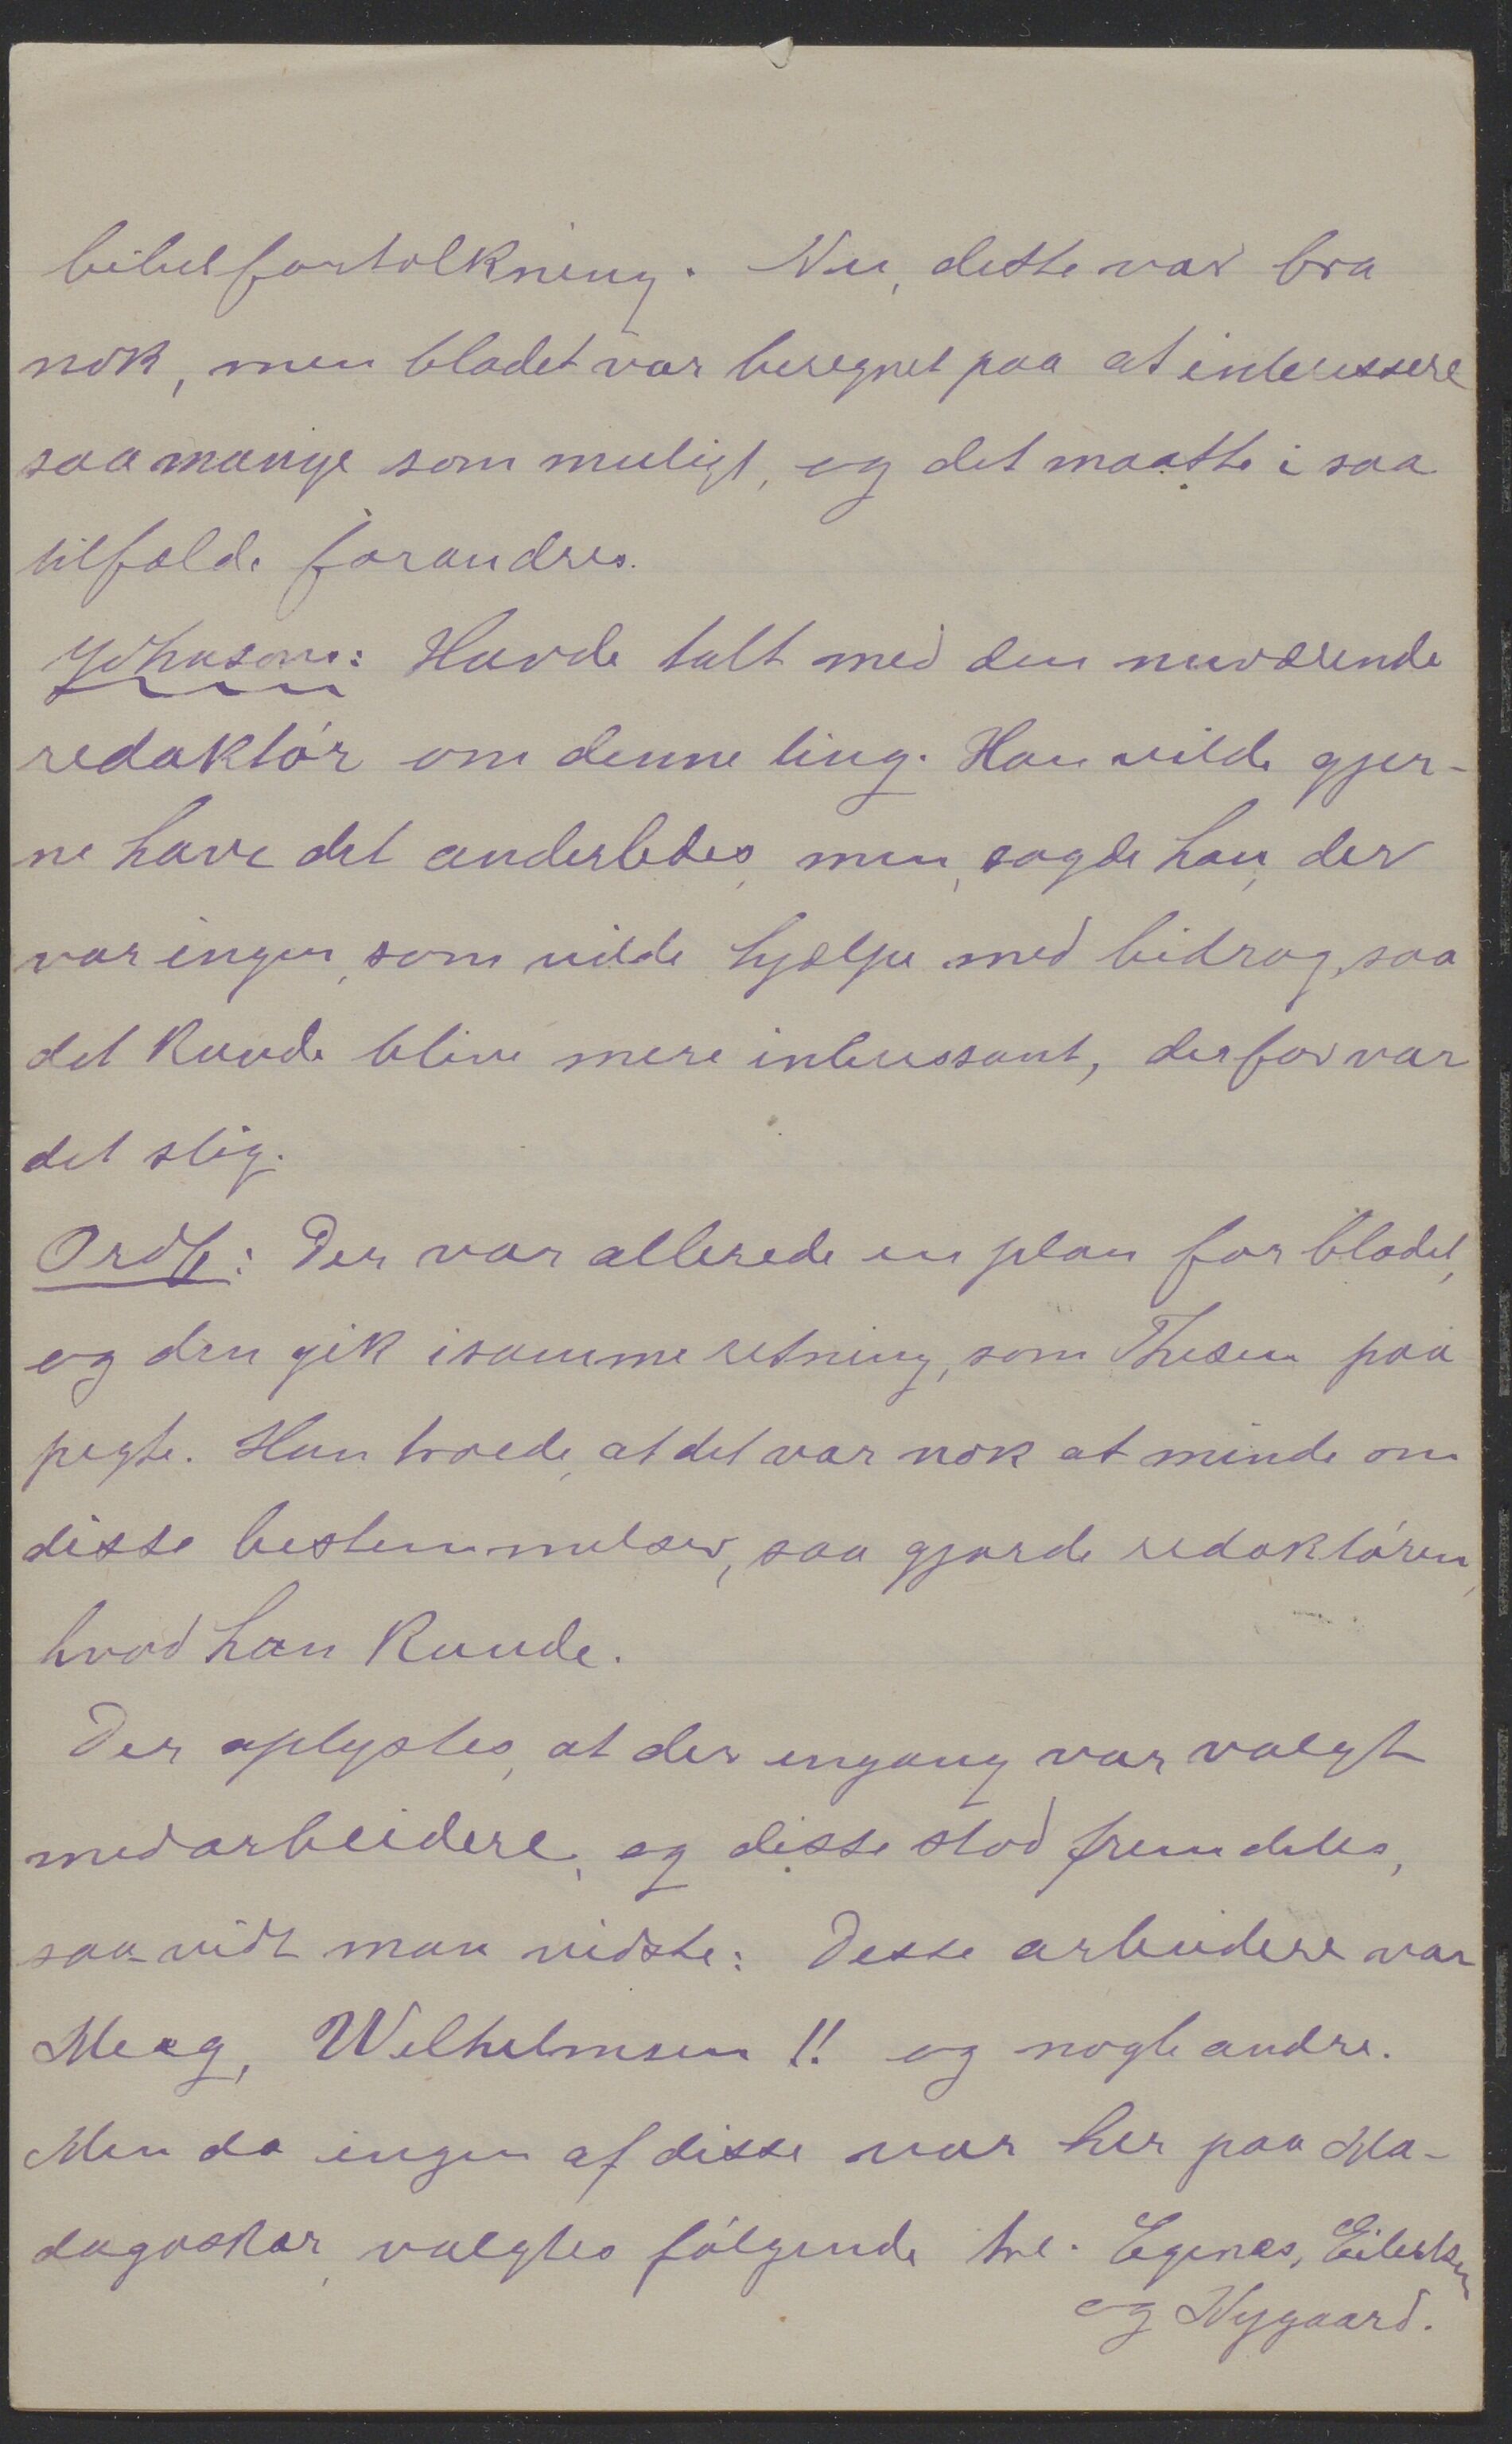 bibelfortolkning. Nu, dette var bra
nok, men bladet var beregnet paa at interessere
saa mange som muligt, og det maatte i saa
tilfælde forandres.
Johnson: Havde talt med den nuværende
redaktór om denne ting. Han vilde gjer-
ne have det anderledes, men, sagde han, der
var ingen, som vilde hjælpe med bidrag, saa
det kunde blive mere interessant, derfor var
det slig.
Ordf: Der var allerede en plan for bladet,
og den gik i samme retning, som Thesen paa
pegte. Han troede, at det var nok at minde om
disse bestemmelser, saa gjorde redaktóren,
hvad han kunde.
Der oplystes, at der engang var valgt
medarbeidere, og disse stod fremdeles,
saa vidt man vidste: Disse arbeidere var
Meeg, Wilhelmsen !! og nogle andre.
Men da ingen af disse var her paa Ma-
dagaskar, valgtes fólgende tre. Egenes, Eilertsen
og Nygaard.